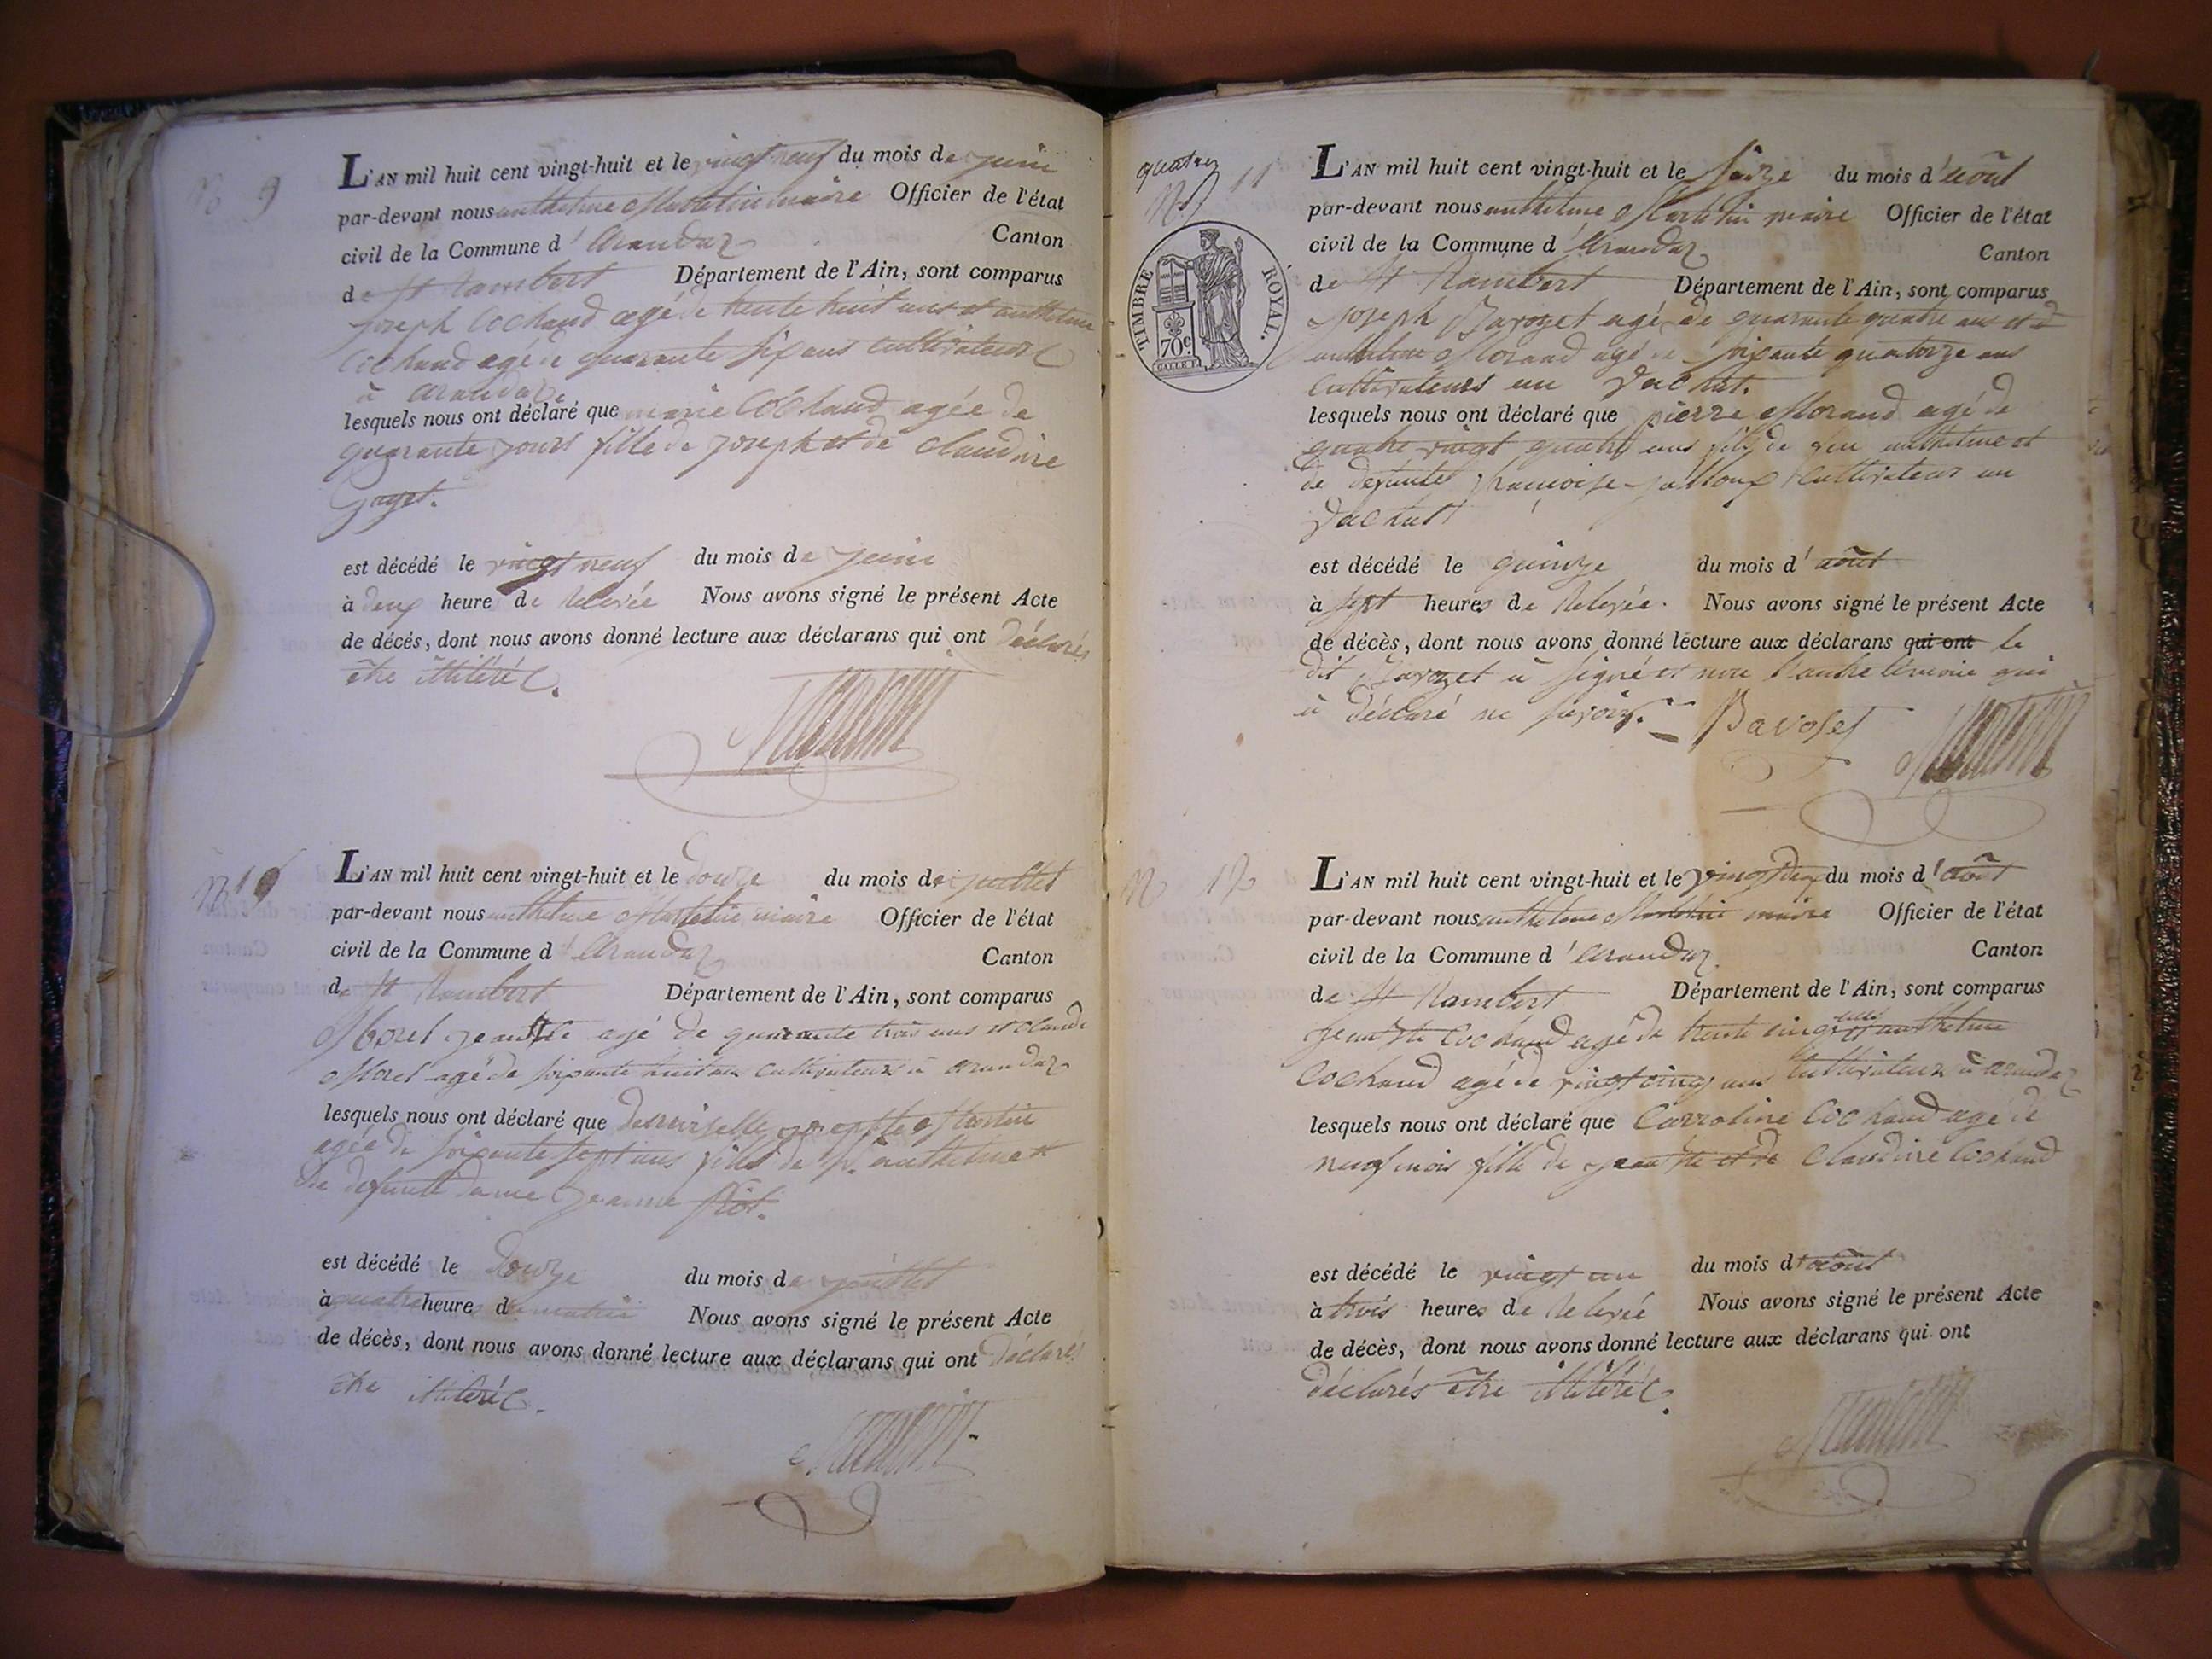 No 9
L'AN mil huit cent vingt-huit et le vingt neuf du mois de juin
par-devant nous anthelme Martelin maire Officier de l'état
civil de la Commune d'arandaz Canton
de St Rambert Département de l'Ain, sont comparus
joseph Cochaud agé de trente huit ans et anthelme
Cochaud agé de quarante six ans cultivateurs
à arandaz
lesquels nous ont déclaré que marie Cochaud agée de
quarante jours fille de joseph et de claudine
Gaget.
est décédé le vingt neuf du mois de juin
à deux heure de relevée Nous avons signé le présent Acte
de décés, dont nous avons donné lecture aux déclarans qui ont déclarés
être illitérés.
No 10
L'AN mil huit cent vingt-huit et le douze du mois de juillet
par-devant nous anthelme Martelin maire Officier de l'état
civil de la Commune d'arandaz Canton
de St Rambert Département de l'Ain, sont comparus
Morel jean Bte agé de quarante trois ans et claude
Morel agé de soixante huit ans cultivateurs à arandaz
lesquels nous ont déclaré que demoiselle
agée de soixante sept ans fille de anthelme et
de defunte dame jeanne
est décédé le douze du mois de juillet
à quatre heures du matin Nous avons signé le présent Acte
de décès, dont nous avons donné lecture aux déclarans qui ont déclarés
être illitérés.
quatre
No 11
TIMBRE ROYAL.
70c
L'AN mil huit cent vingt-huit et le seize du mois d'août
par-devant nous anthelme Martelin maire Officier de l'état
civil de la Commune d'arandaz Canton
de St Rambert Département de l'Ain, sont comparus
joseph Bavozet agé de quarante quatre ans et
anthelme Morand agé de soixante quatorze ans
cultivateurs au Vachat.
lesquels nous ont déclaré que pierre Morand agé de
quatre vingt quatre ans fils de feu anthelme et
de defunte françoise cultivateur au
Vachat
est décédé le quinze du mois d'août
à sept heures de relevée. Nous avons signé le présent Acte
de décès, dont nous avons donné lecture aux déclarans qui ont le
dit Bavozet a signé et non l'autre témoin qui
a déclaré ne savoir. Bavoset
No 12
L'AN mil huit cent vingt-huit et le vingt deux du mois d'août
par-devant nous anthelme Martelin maire Officier de l'état
civil de la Commune d'arandaz Canton
de St Rambert Département de l'Ain, sont comparus
jean Bte Cochaud agé de trente cinq ans et anthelme
Cochaud agé de vingt cinq ans cultivateurs à arandaz
lesquels nous ont déclaré que Carroline Cochaud agé de
neuf mois fille de jean Bte et de Claudine Cochaud
est décédé le vingt un du mois d'août
à trois heures de relevée Nous avons signé le présent Acte
de décès, dont nous avons donné lecture aux déclarans qui ont
déclarés être illitérés.